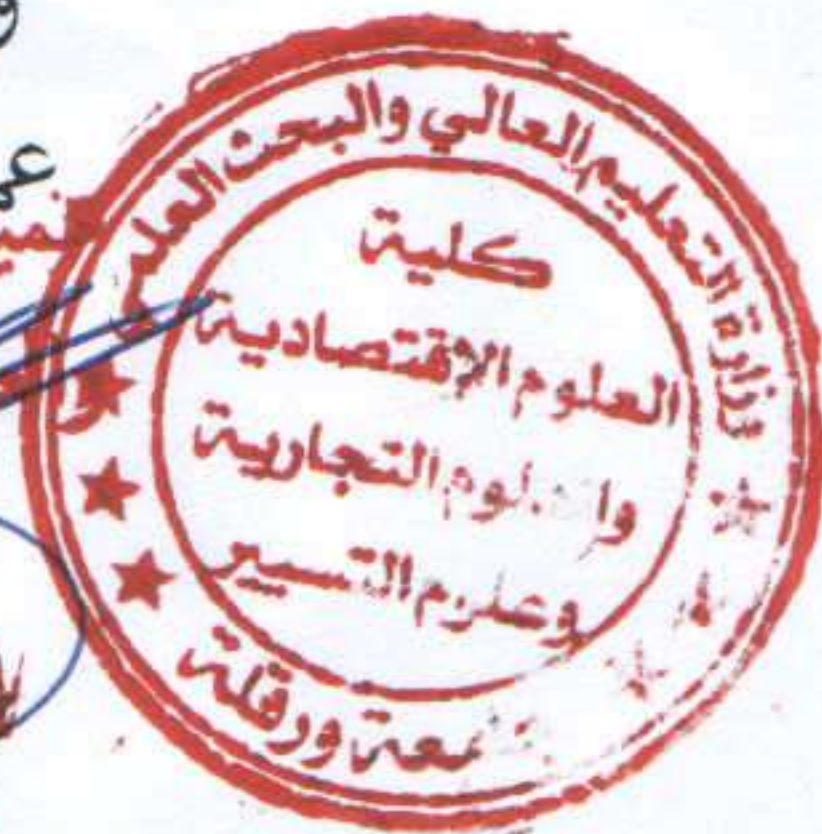 وزارة التعليم العالي والبحث العلمي
كلية
العلوم الإقتصادية
والعلوم التجارية
وعلوم التسيير
جامعة ورقلة